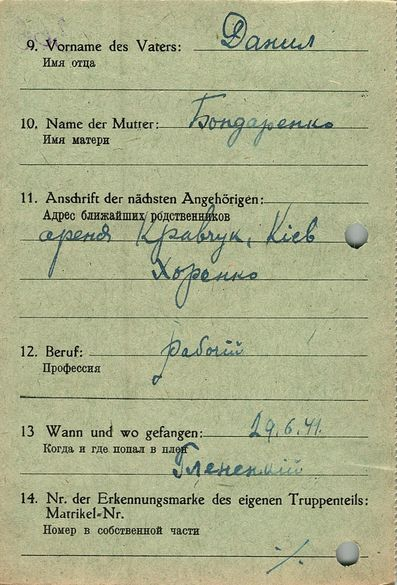 9. Vorname des Vaters: Данил
Имя отца
10. Name der Mutter: Бондаренко
Имя матери
11. Anschrift der nächsten Angehörigen:
Адрес ближайших родственников
Кравчук, Кіев
Хоренко
12. Beruf: рабочій
Профессия
13 Wann und wo gefangen: 29.6.41.
Когда и где попал в плен
14. Nr. der Erkennungsmarke des eigenen Truppenteils:
Matrikel-Nr.
Номер в собственной части
·/.